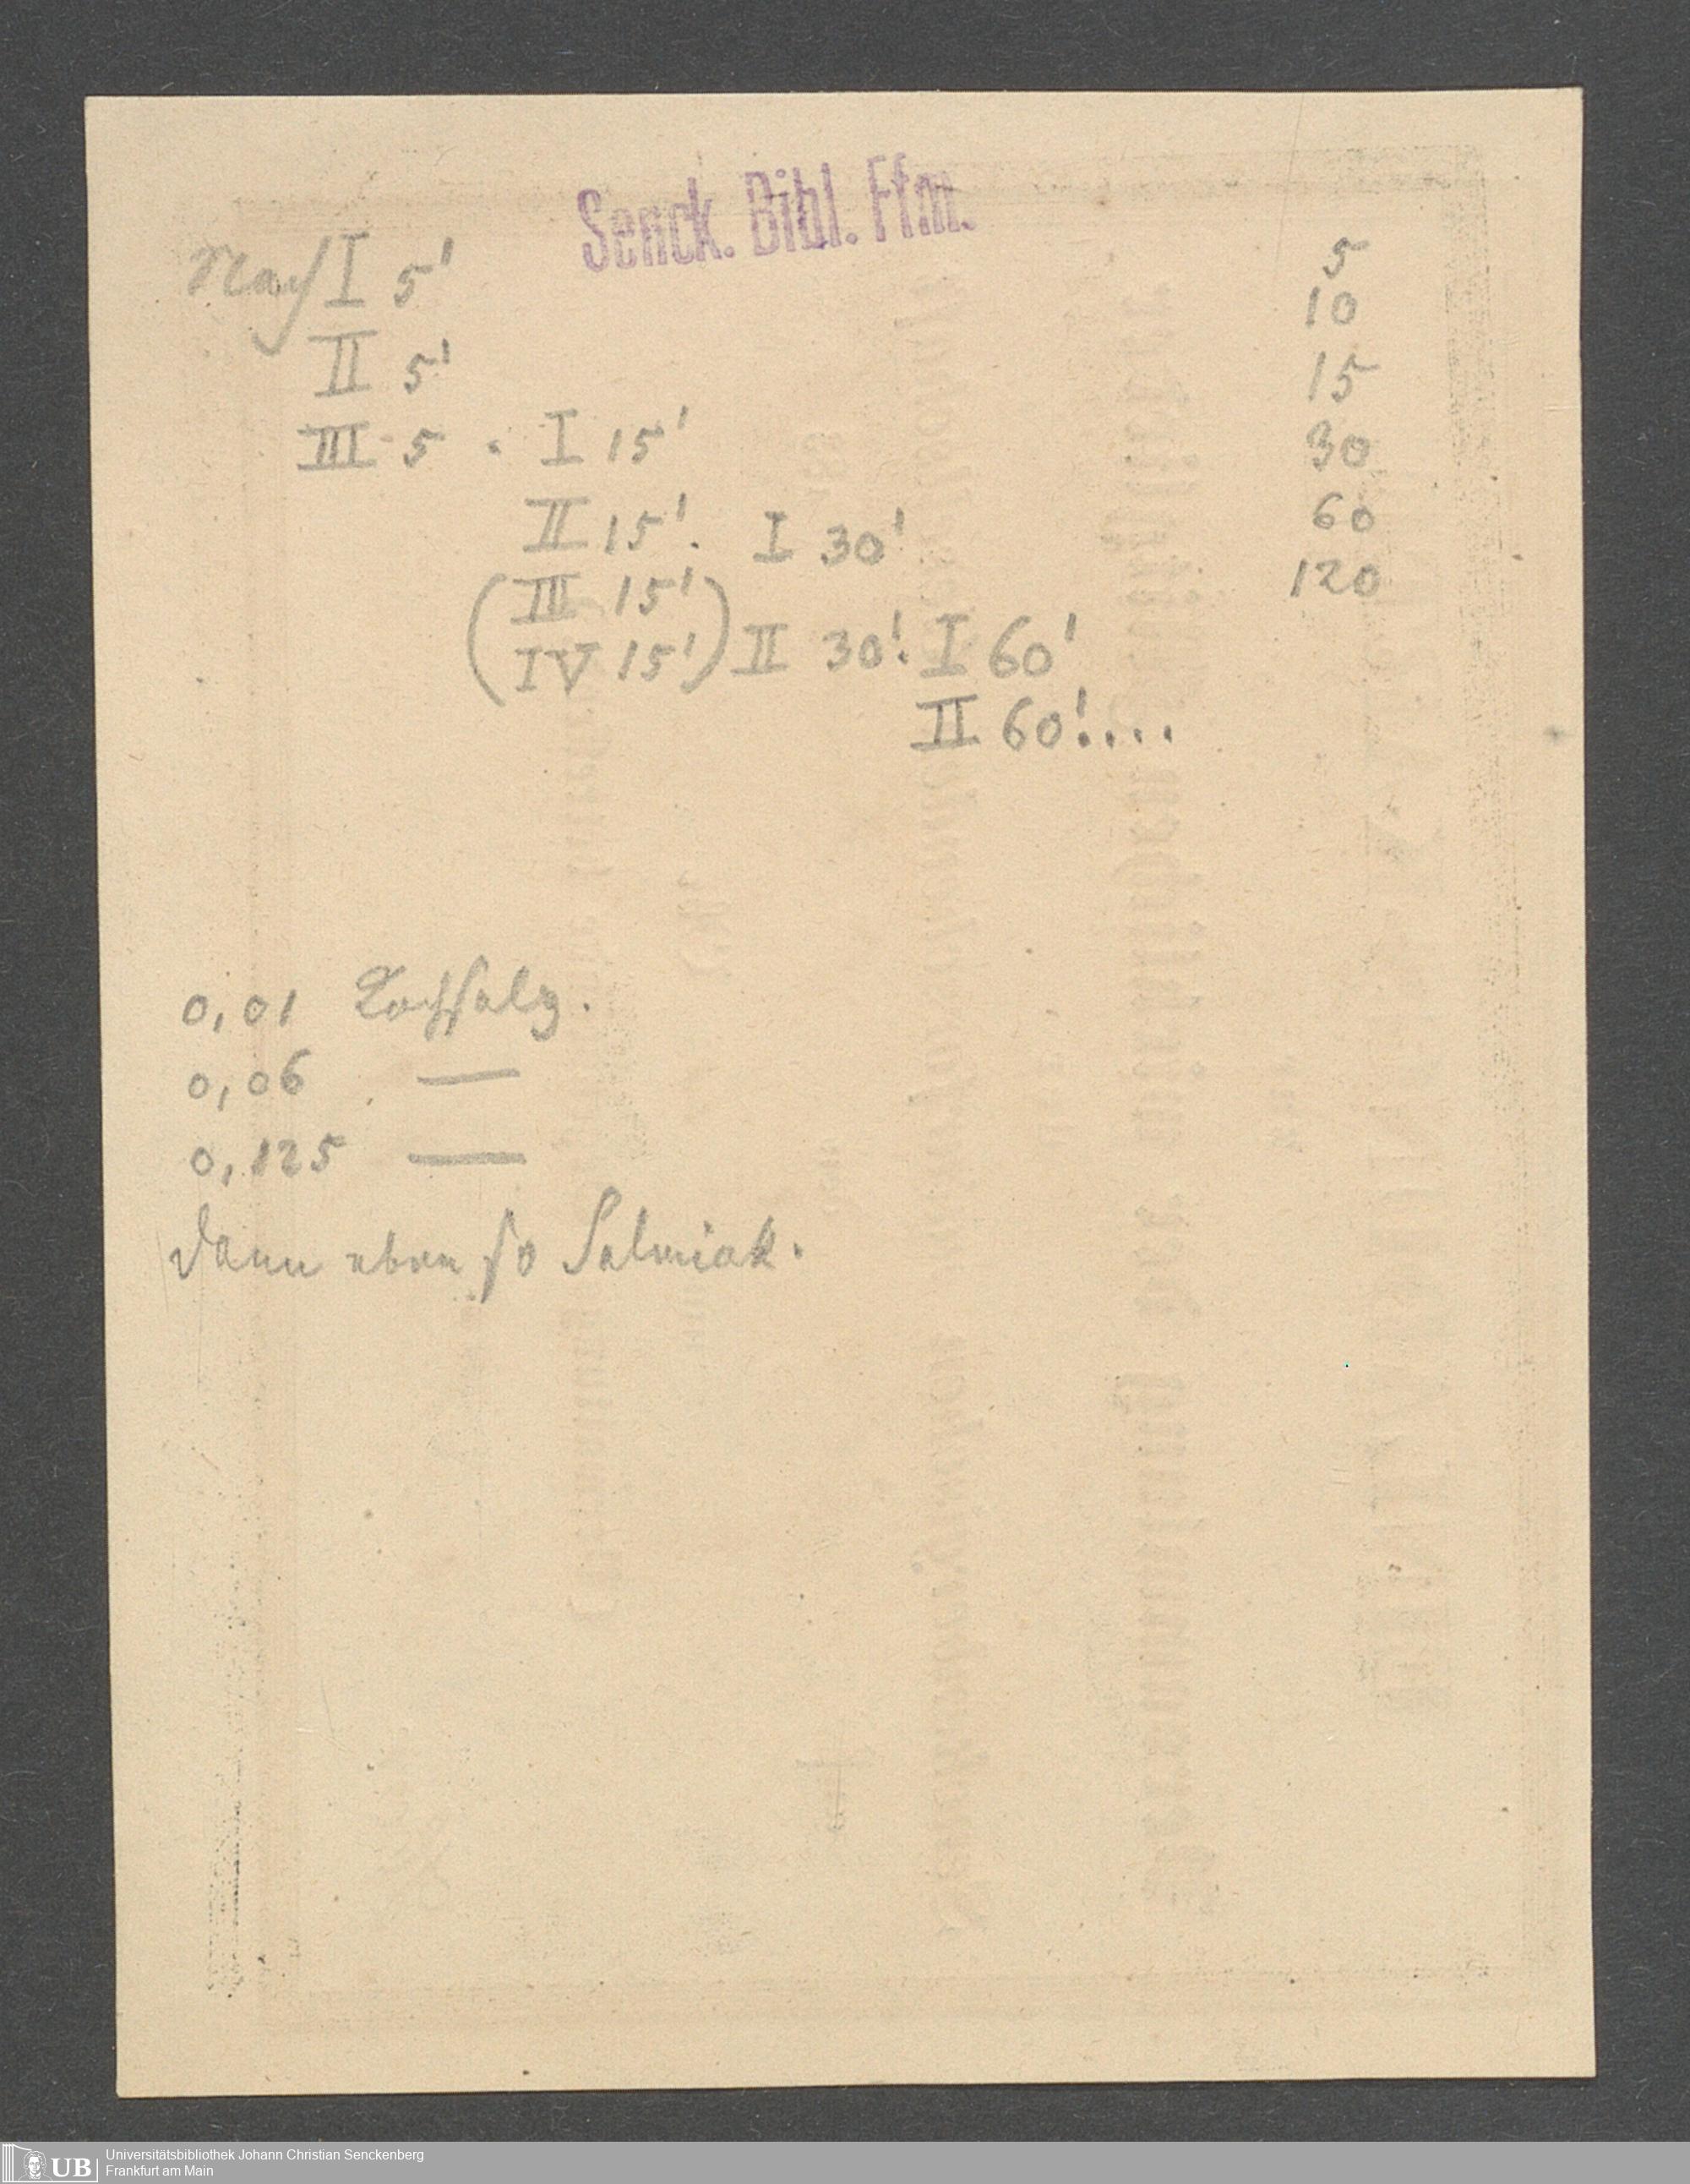 Senck. Bibl. Ffm.
Nach I 5' 5
10
II 5' 15
III 5 . I 15' 30
II 15'. I 30' 60
(III 15' 120
IV 15') II 30'. I 60'
II 60'....
0,01 Kochsalz.
0,06 —
0,125 —
Dann eben so Salmiak.
UB
Universitätsbibliothek Johann Christian Senckenberg
Frankfurt am Main